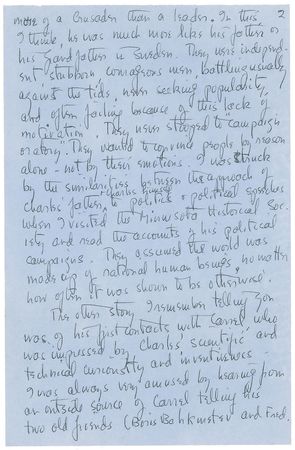 2
more of a Crusader than a leader. In this
I think, he was much more like his father or
his Grandfather in Sweden. They were independ-
ent stubborn courageous men, battling usually
against the tide, never seeking popularity,
and often failing because of this lack of
motivation. They never stooped to "campaign
oratory." They wanted to convince people by reason
alone - not by their emotions. I was struck
by the similarities between the approach of
Charles' father, & Charles himself
to politics & political speeches
when I visited the Minnesota Historical Soc-
iety and read the accounts of his political
campaigns. They assumed the world was
made up of rational human beings, no matter
how often it was shown to be otherwise!
The other story I remember telling you
was of his first contacts with Carrel who
was impressed by Charles' scientific and
technical curiosity and inventiveness
I was always very amused by hearing from
an outside source of Carrel telling his
two old friends (Boris and Fred.